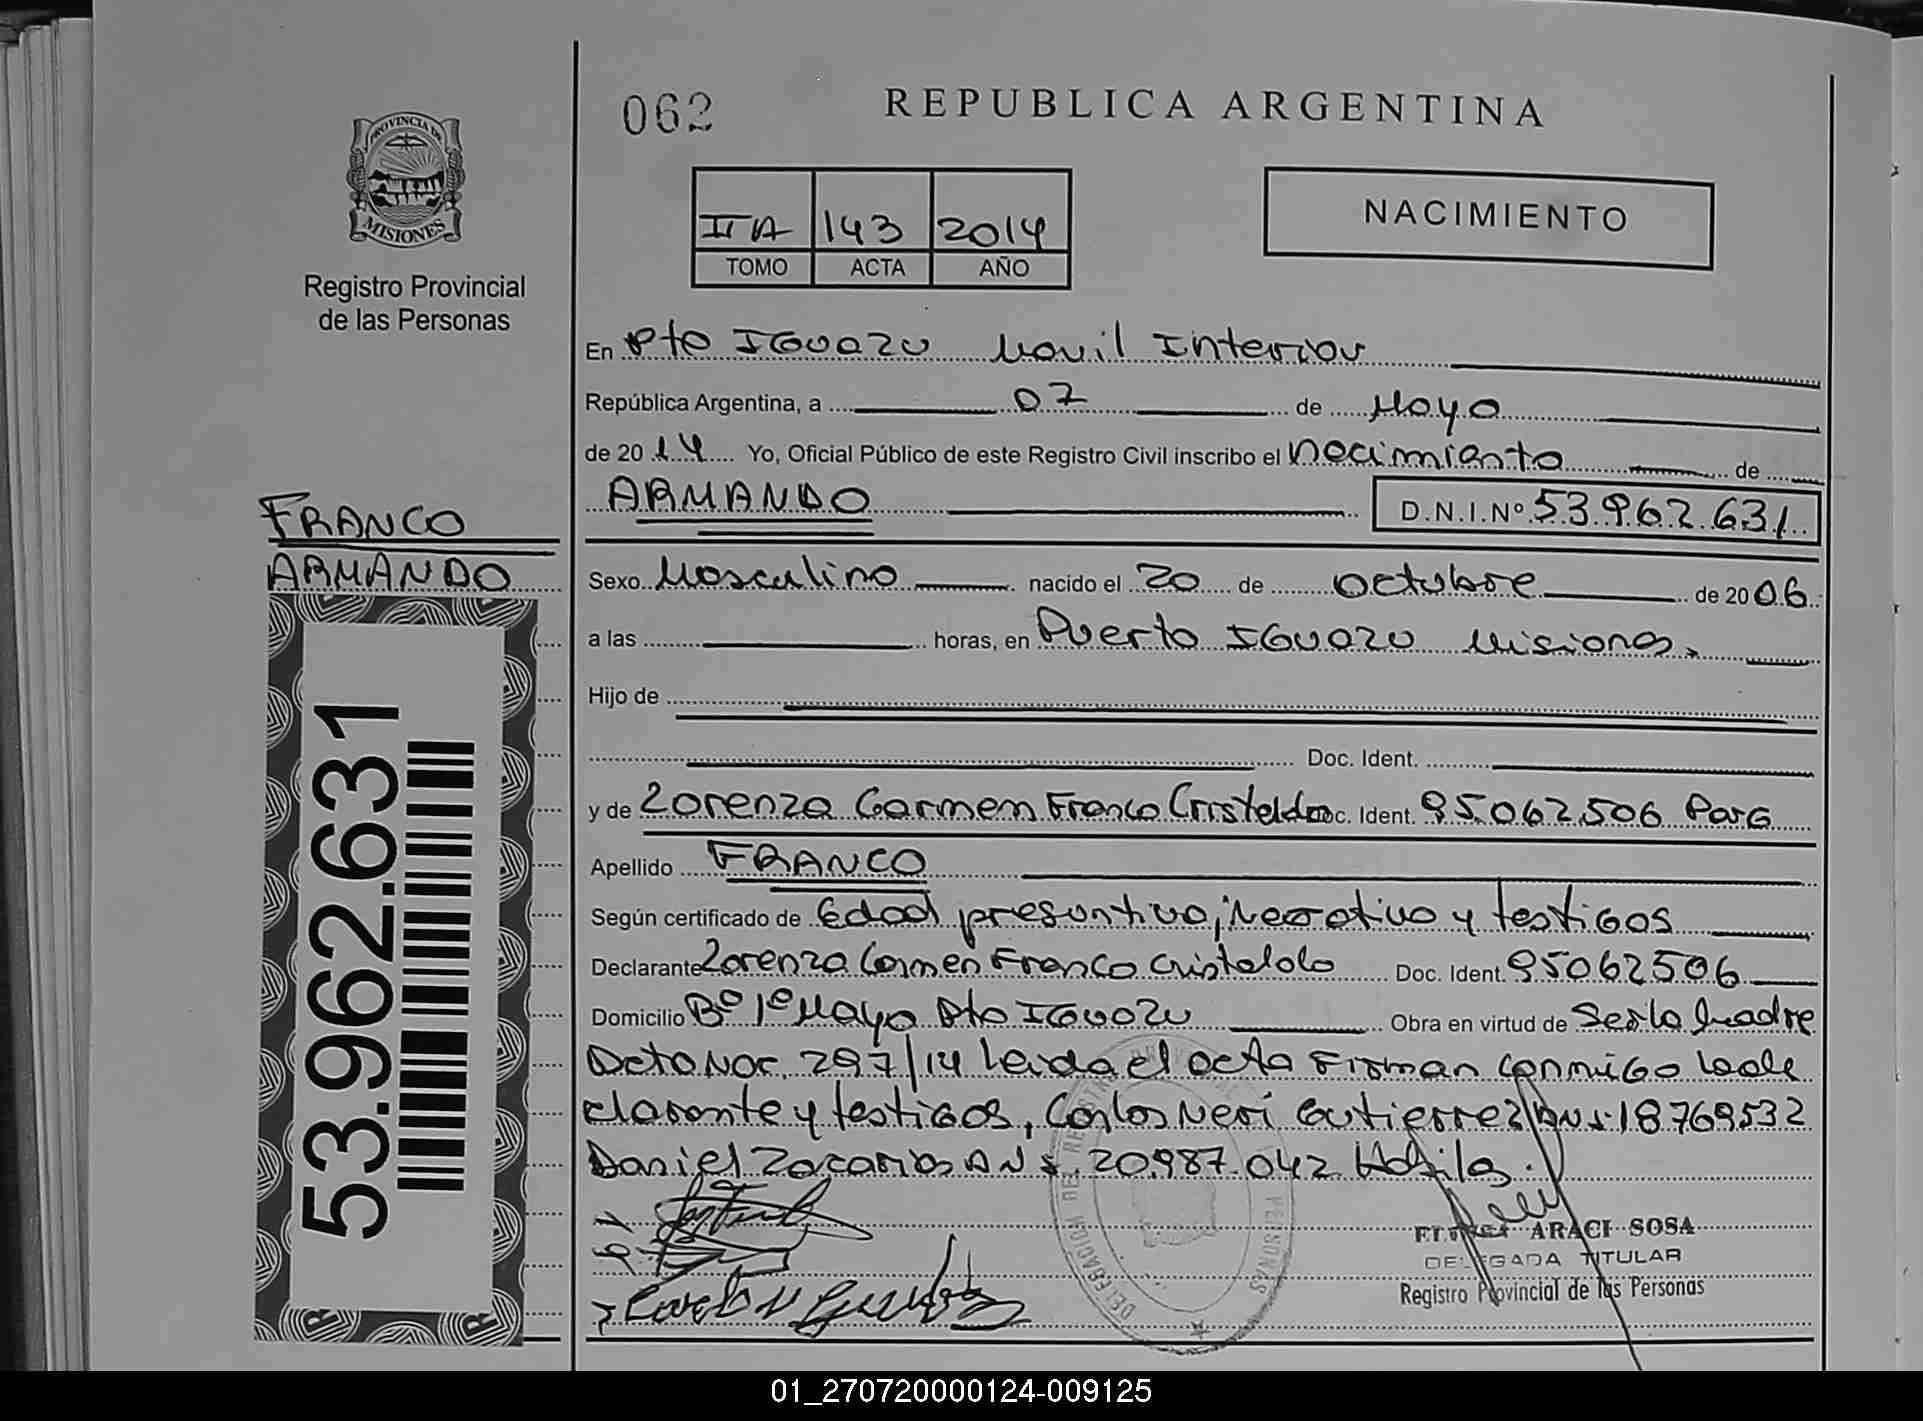 062
REPUBLICA ARGENTINA
PROVINCIA DE
MISIONES
Registro Provincial
de las Personas
II A 143 2014
TOMO ACTA AÑO
NACIMIENTO
En Pto IGUAZU Movil Interior
República Argentina, a 07 de Mayo
de 2014 Yo, Oficial Público de este Registro Civil inscribo el Nacimiento de
ARMANDO D.N.I.Nº 53.962.631
FRANCO
ARMANDO
Sexo Masculino nacido el 20 de octubre de 2006
a las horas, en Puerto IGUAZU Misiones.
Hijo de
Doc. Ident.
y de Lorenza Carmen Franco Cristaldo Doc. Ident. 95.062.506 Parg
Apellido FRANCO
Según certificado de Edad presuntiva, Negativo y testigos
Declarante Lorenza Carmen Franco Cristaldo Doc. Ident. 95062506
Domicilio Bº 1º Mayo Pto IGUAZU Obra en virtud de Ser la Madre
Dcto Nac. 297/14 Leida el acta Firman conmigo la de
clarante y testigos, Carlos Neri Gutierrez DNI 18769532
Daniel Zacarias DNI 20.987.042 Habiles.
53.962.631
DELEGACION DEL REGISTRO PERSONAS
ARACI SOSA
DELEGADA TITULAR
Registro Provincial de las Personas
01_270720000124-009125